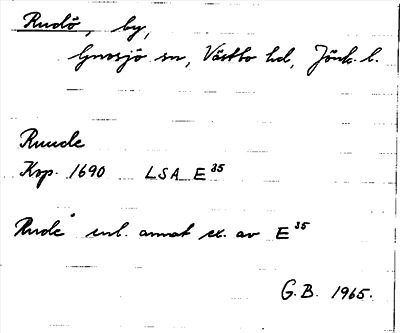 Rudö, by,
Gnosjö sn, Västbo hd, Jönk. l.
Ruude
Kop. 1690 LSA E 35
Rude° enl. annat ex. av E 35
G.B. 1965.